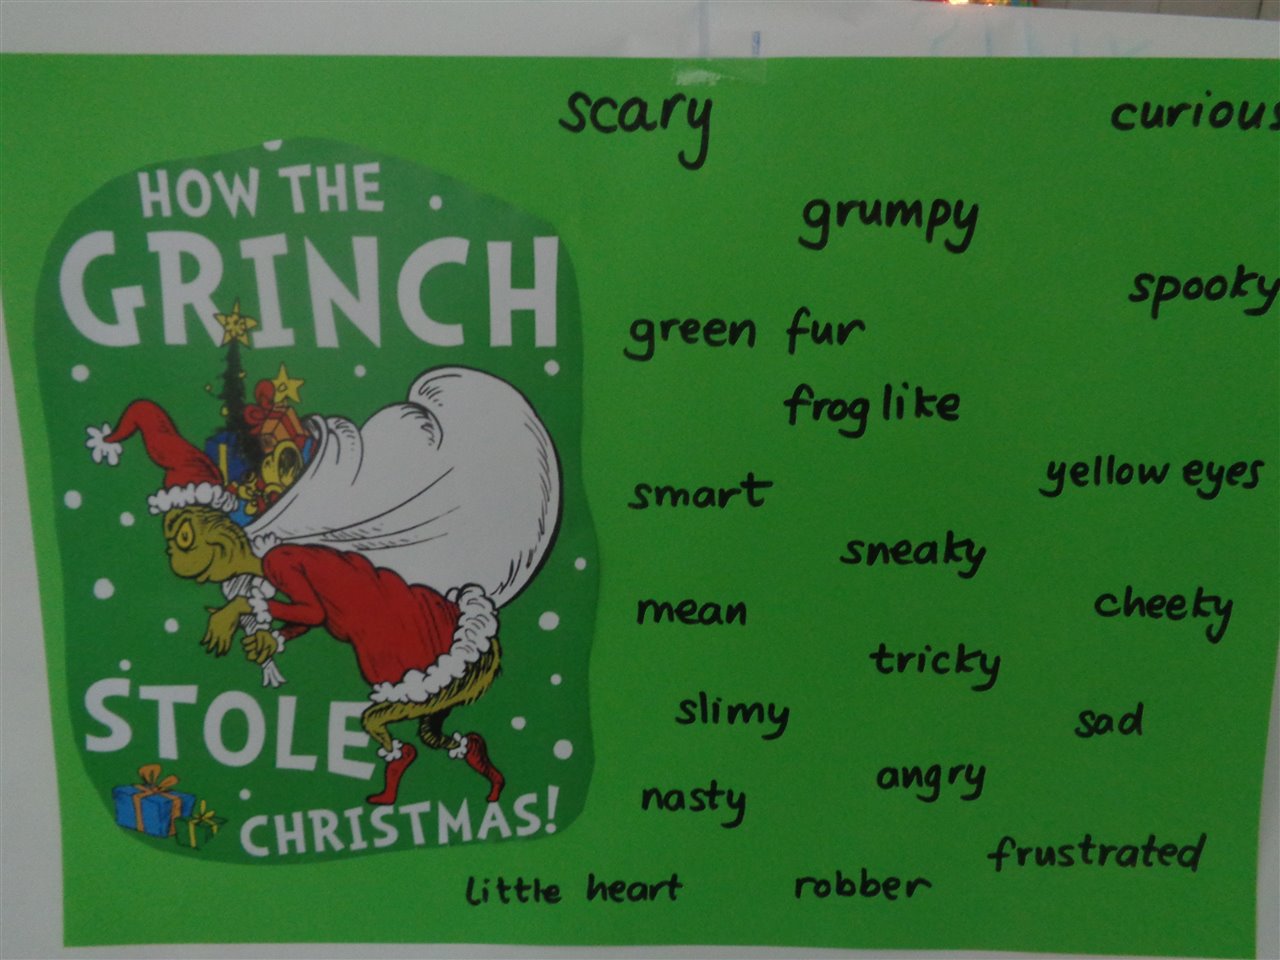 HOW THE
GRINCH
STOLE
CHRISTMAS!
scary
curious
grumpy
spooky
green fur
frog like
yellow eyes
smart
sneaky
mean
cheeky
tricky
slimy
sad
angry
nasty
frustrated
little heart
robber